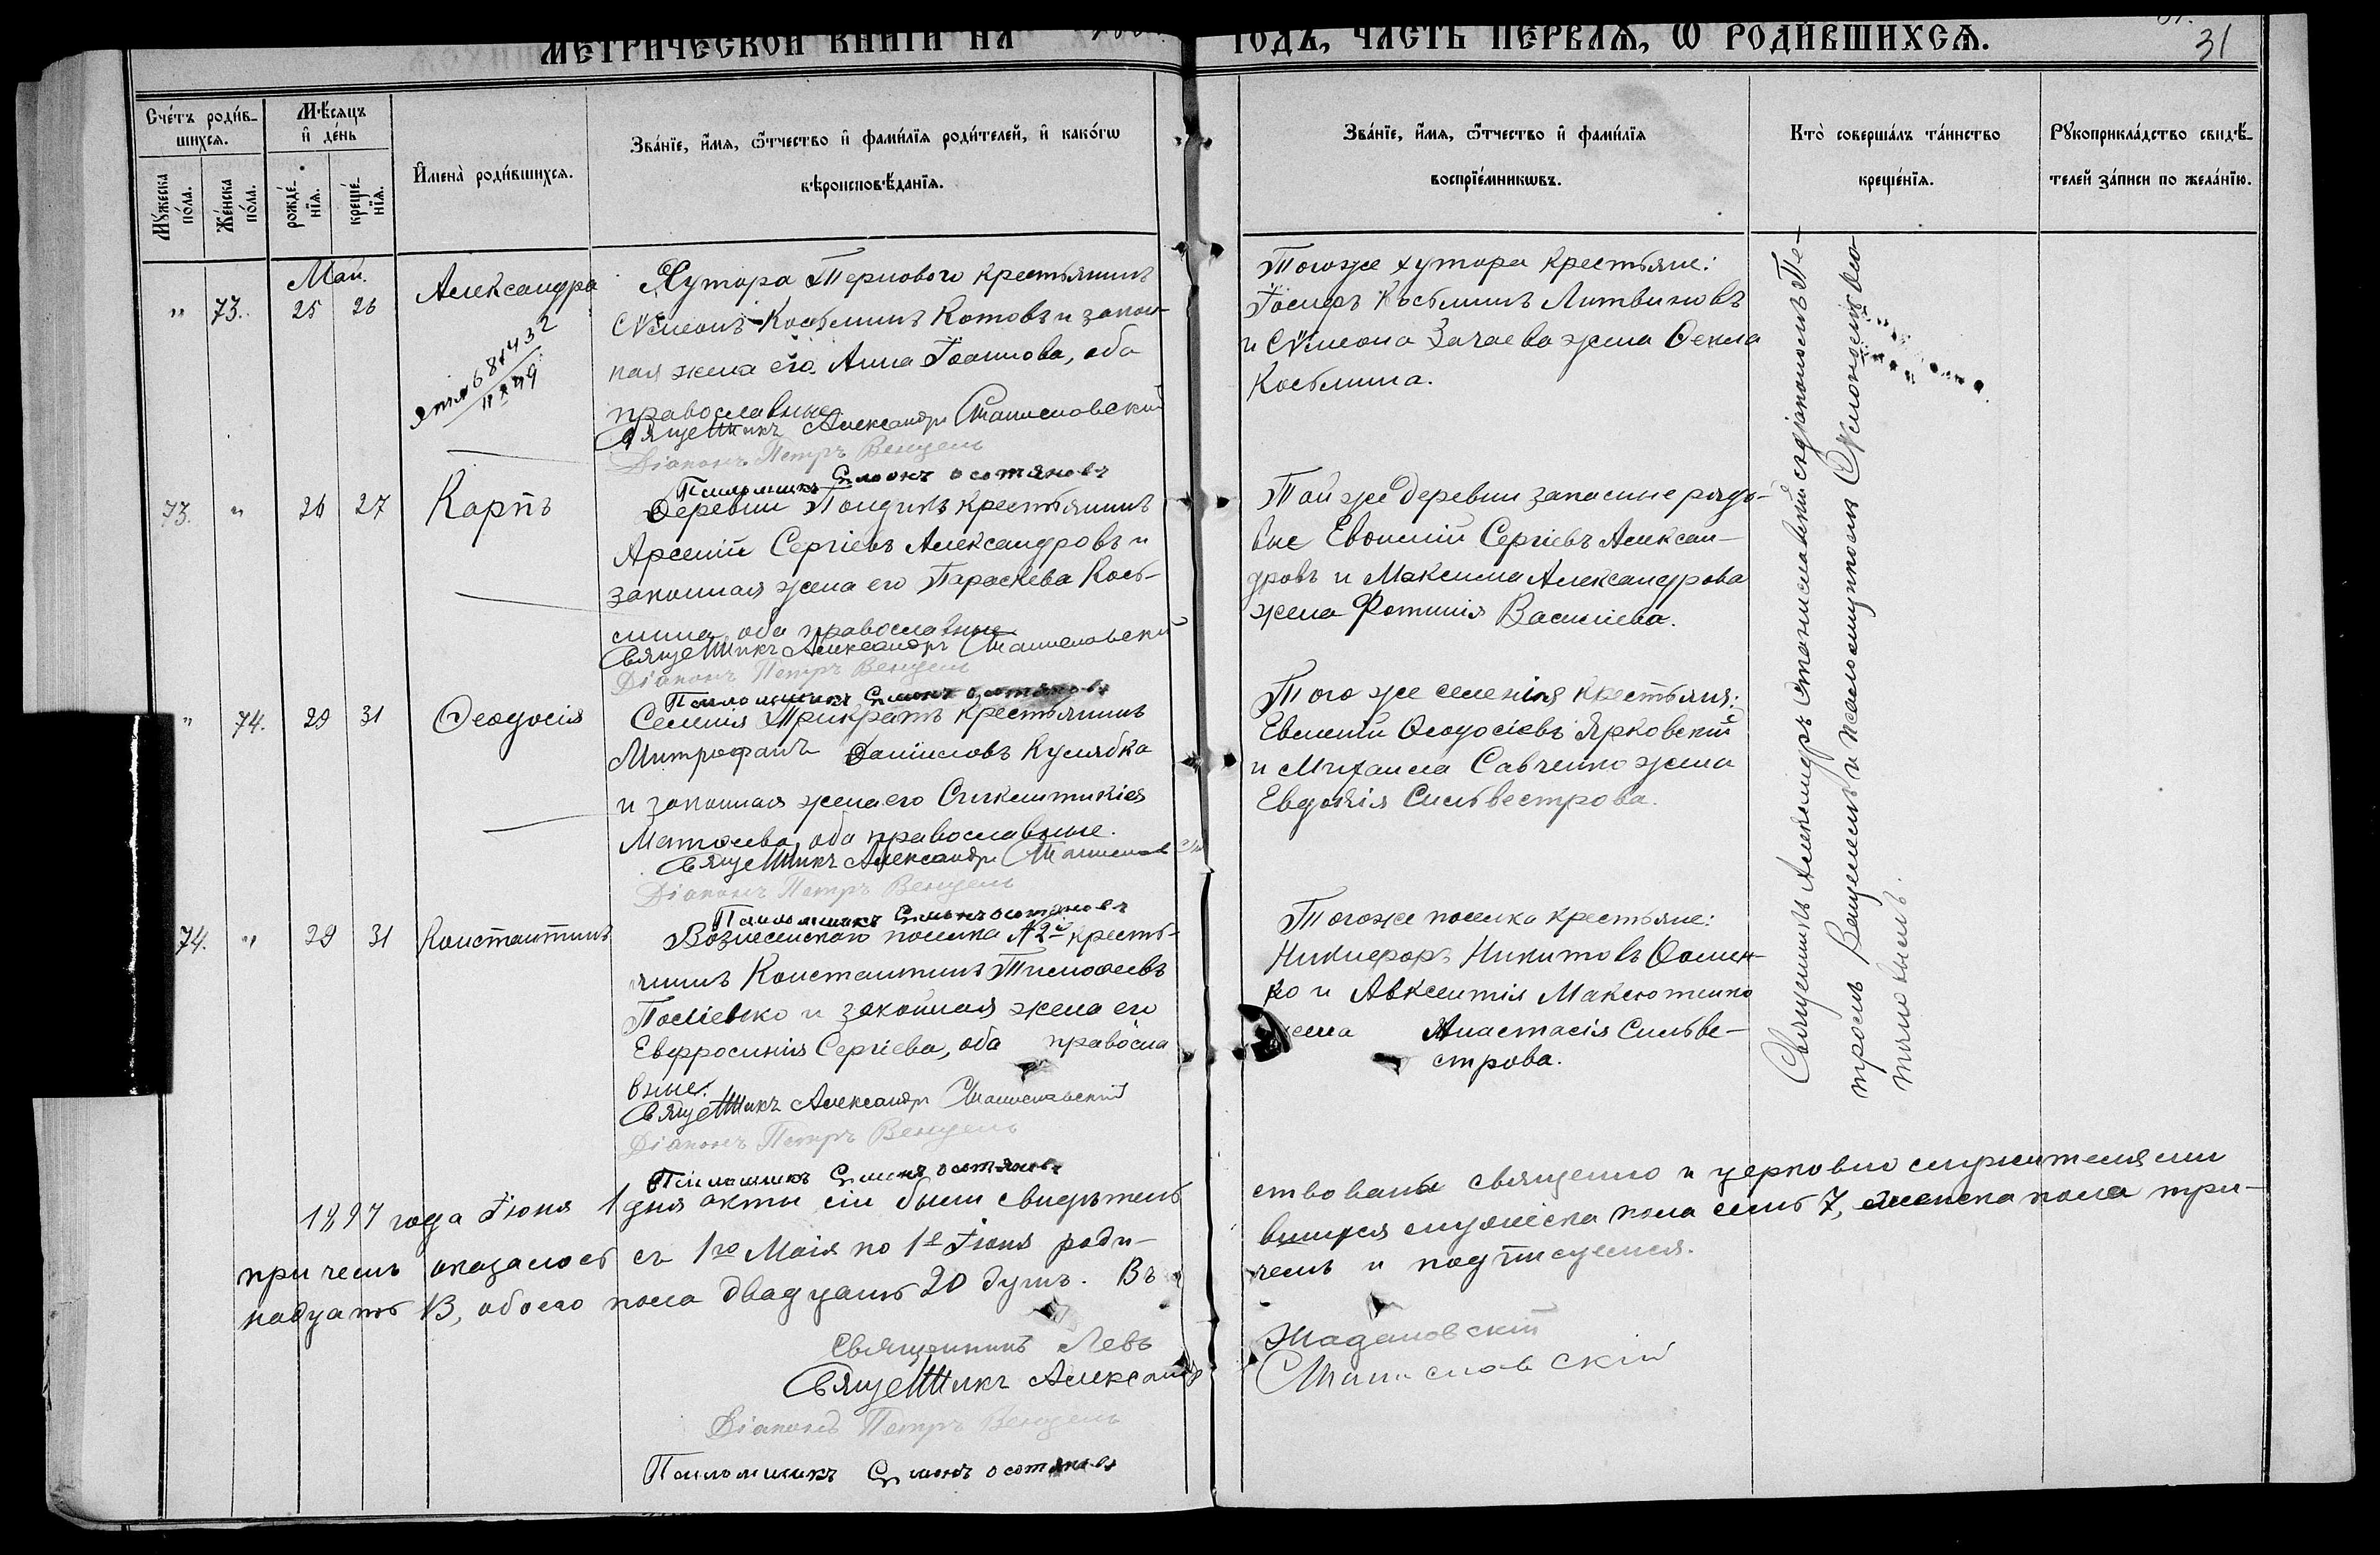 МЕТРИЧЕСКОЙ КНИГИ НА
ГОДЪ, ЧАСТЬ ПЕРВАЯ, Ѡ РОДИВШИХСЯ.
31
Сче́тъ роди́в-
шихся.
Мѣ́сяцъ
и҆ де́нь
Му́жеска
по́ла.
Же́нска
по́ла.
рожде́-
нїя.
креще́-
нїя.
И҆мена̀ роди́вшихся.
Зва́нїе, и҆́мя, ѻ҆́тчество и҆ фами́лїя роди́телей, и҆ како́гѡ
вѣроисповѣ́данїя.
Зва́нїе, и҆́мя, ѻ҆́тчество и҆ фами́лїя
воспрїе́мникѡвъ.
Кто̀ соверша́лъ та́инство
креще́нїя.
Рꙋкоприкла́дство свидѣ́-
телей за́писи по жела́нїю.
Май.
" 73. 25 26 Александра
Хутора Терноваго крестьянинъ
Сѵмеонъ Косьминъ Котовъ и закон-
ная жена его Анна Іоаннова, оба
православные
Священникъ Александръ Станиславскій
Діаконъ Петръ Венцель
Псаломщикъ
Тогоже хутора крестьяне:
Іосифъ Косьминъ Литвиновъ
и Сѵмеона Зачаева жена Ѳекла
Косьмина.
73. " 26 27 Карпъ
Деревни крестьянинъ
Арсеній Сергіевъ Александровъ и
законная жена его Параскева Кось-
мина, оба православные
Священникъ Александръ Станиславскій
Діаконъ Петръ Венцель
Псаломщикъ
Той же деревни запасные рядо-
вые Евѳимій Сергіевъ Алексан-
дровъ и Максима Александрова
жена Фотинія Васильева.
" 74. 29 31 Ѳеодосія
Селенія Трикратъ крестьянинъ
Митрофанъ Даніиловъ Кулябка
и законная жена его Синклитикія
Матѳіева, оба православные.
Священникъ Александръ Станиславскій
Діаконъ Петръ Венцель
Псаломщикъ
Того же селенія крестьяня:
Евменій Ѳеодосіевъ Ярковскій
и Михаила Савченко жена
Евдокія Сильвестрова.
74. " 29 31 Константинъ
Вознесенскаго поселка №2й кресть-
янинъ Константинъ Тимоѳеевъ
и законная жена его
Евфросинія Сергіева, оба правосла
вные.
Священникъ Александръ Станиславскій
Діаконъ Петръ Венцель
Псаломщикъ
Тогоже поселка крестьяне:
Никифоръ Никитовъ Ѳомен-
ко и Авксентія Максютенко
жена Анастасія Сильве-
строва.
Священникъ Александръ Станиславскій съ діакономъ Пе-
тромъ Венцелемъ и псаломщикомъ Сѵмеономъ
1897 года Іюня 1 дня акты сіи были свидѣтель
ствованы священно и церковно служителями
при чемъ оказалось съ 1го Маія по 1е Іюня роди-
вшихся мужеска пола семь 7, женска пола три-
надцать 13, обоего пола двадцать 20 душъ. Въ
чемъ и подписуемся.
Священникъ Левъ Жадановскій
Священникъ Александръ Станиславскій
Діаконъ Петръ Венцель
Псаломщикъ